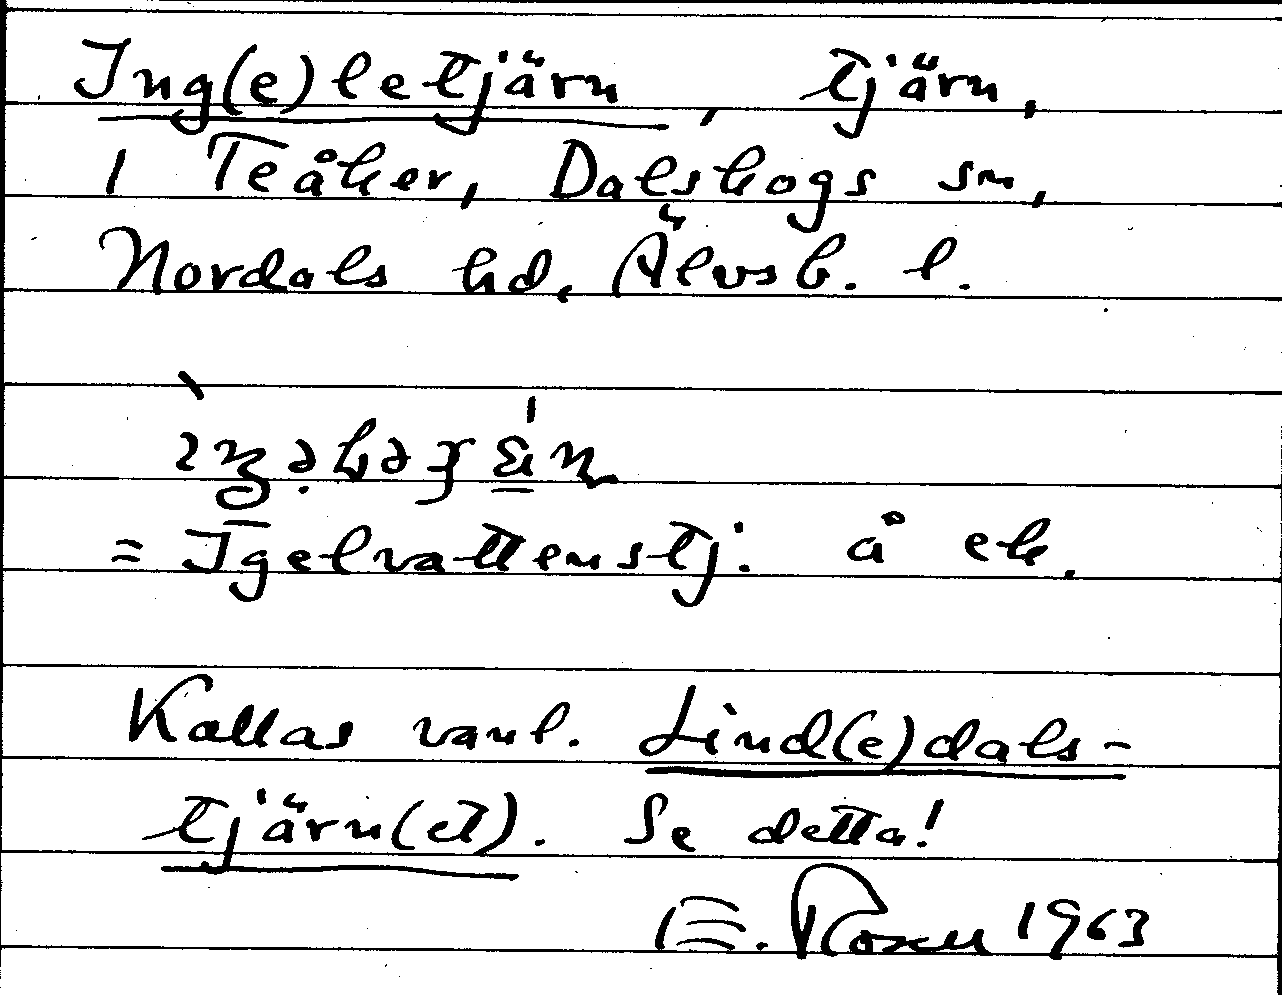 Ing(e)letjärn, tjärn,
i Teåker, Dalskogs sn,
Nordals hd, Älvsb. l.
= Igelvattenstj. å ek.
Kallas vanl. Lind(e)dals-
tjärn(et). Se detta!
E. Rosell 1963